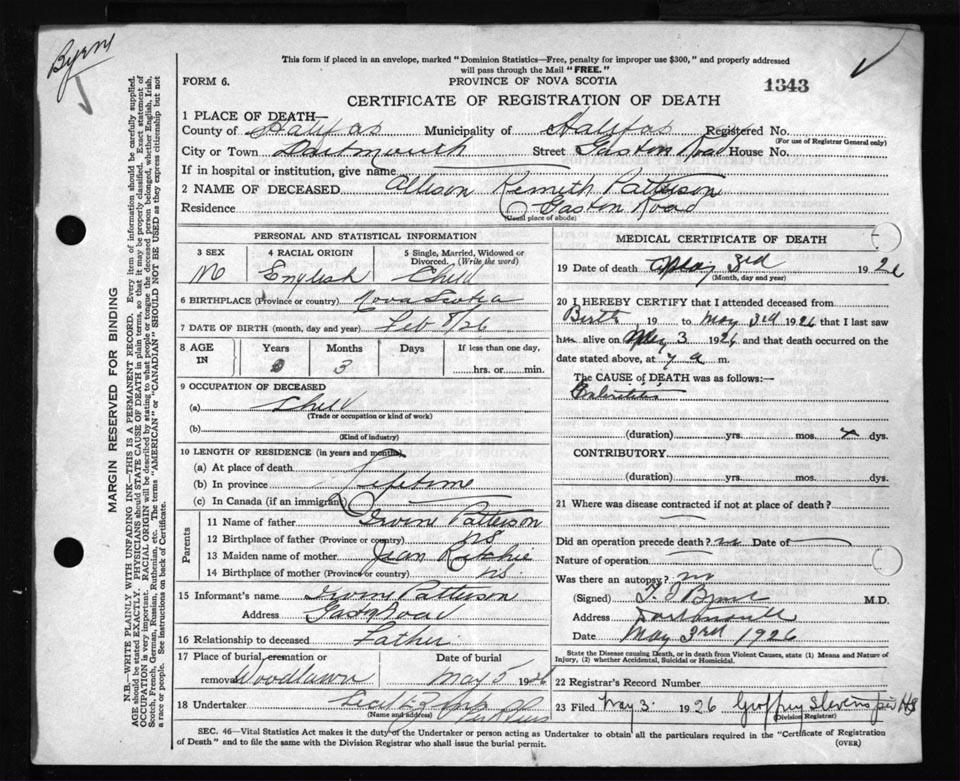 Byrne
This form if placed in an envelope, marked "Dominion Statistics—Free, penalty for improper use $300," and properly addressed
will pass through the Mail "FREE."
FORM 6.
PROVINCE OF NOVA SCOTIA
1343
CERTIFICATE OF REGISTRATION OF DEATH
1 PLACE OF DEATH—
County of Halifax Municipality of Halifax Registered No.
(For use of Registrar General only)
City or Town Dartmouth Street Gaston Road House No.
If in hospital or institution, give name
2 NAME OF DECEASED Allison Kenneth Patterson
Residence Gaston Road
(Usual place of abode)
PERSONAL AND STATISTICAL INFORMATION
3 SEX 4 RACIAL ORIGIN 5 Single, Married, Widowed or
Divorced. (Write the word)
M English Child
6 BIRTHPLACE (Province or country) Nova Scotia
7 DATE OF BIRTH (month, day and year) Feb 8/26
8 AGE IN Years Months Days If less than one day,
0 3 hrs. or min.
9 OCCUPATION OF DECEASED
(a) Child
(Trade or occupation or kind of work)
(b)
(Kind of industry)
10 LENGTH OF RESIDENCE (in years and months)
(a) At place of death
(b) In province Lifetime
(c) In Canada (if an immigrant)
Parents
11 Name of father Irvine Patterson
12 Birthplace of father (Province or country) NS
13 Maiden name of mother Jean Ritchie
14 Birthplace of mother (Province or country) N.S.
15 Informant's name Irvine Patterson
Address Gaston Road
16 Relationship to deceased Father
17 Place of burial, cremation or Date of burial
removal Woodlawn May 5 1926
18 Undertaker
(Name and address)
MEDICAL CERTIFICATE OF DEATH
19 Date of death May 3rd 1926
(Month, day and year)
20 I HEREBY CERTIFY that I attended deceased from
Birth 19 to May 3rd 1926 that I last saw
him alive on May 3 1926 and that death occurred on the
date stated above, at 7 a m.
The CAUSE of DEATH was as follows:—
(duration) yrs. mos. dys.
CONTRIBUTORY
(duration) yrs. mos. dys.
21 Where was disease contracted if not at place of death?
Did an operation precede death? no Date of
Nature of operation
Was there an autopsy? no
(Signed) Byrne M.D.
Address Dartmouth
Date May 3rd 1926
State the Disease causing Death, or in death from Violent Causes, state (1) Means and Nature of
Injury, (2) whether Accidental, Suicidal or Homicidal.
22 Registrar's Record Number
23 Filed May 3. 1926 Godfrey Stevens per HS
(Division Registrar)
SEC. 46—Vital Statistics Act makes it the duty of the Undertaker or person acting as Undertaker to obtain all the particulars required in the "Certificate of Registration
of Death" and to file the same with the Division Registrar who shall issue the burial permit.
(OVER)
MARGIN RESERVED FOR BINDING
N.B.—WRITE PLAINLY WITH UNFADING INK—THIS IS A PERMANENT RECORD. Every item of information should be carefully supplied.
AGE should be stated EXACTLY. PHYSICIANS should STATE CAUSE OF DEATH in plain terms, so that it may be properly classified. Exact statement of
OCCUPATION is very important. RACIAL ORIGIN will be described by stating to what people or tongue the deceased person belonged, whether English, Irish,
Scotch, French, German, Russian, Ruthenian, etc. The terms "AMERICAN" or "CANADIAN" SHOULD NOT BE USED as they express citizenship but not
a race or people. See instructions on back of Certificate.